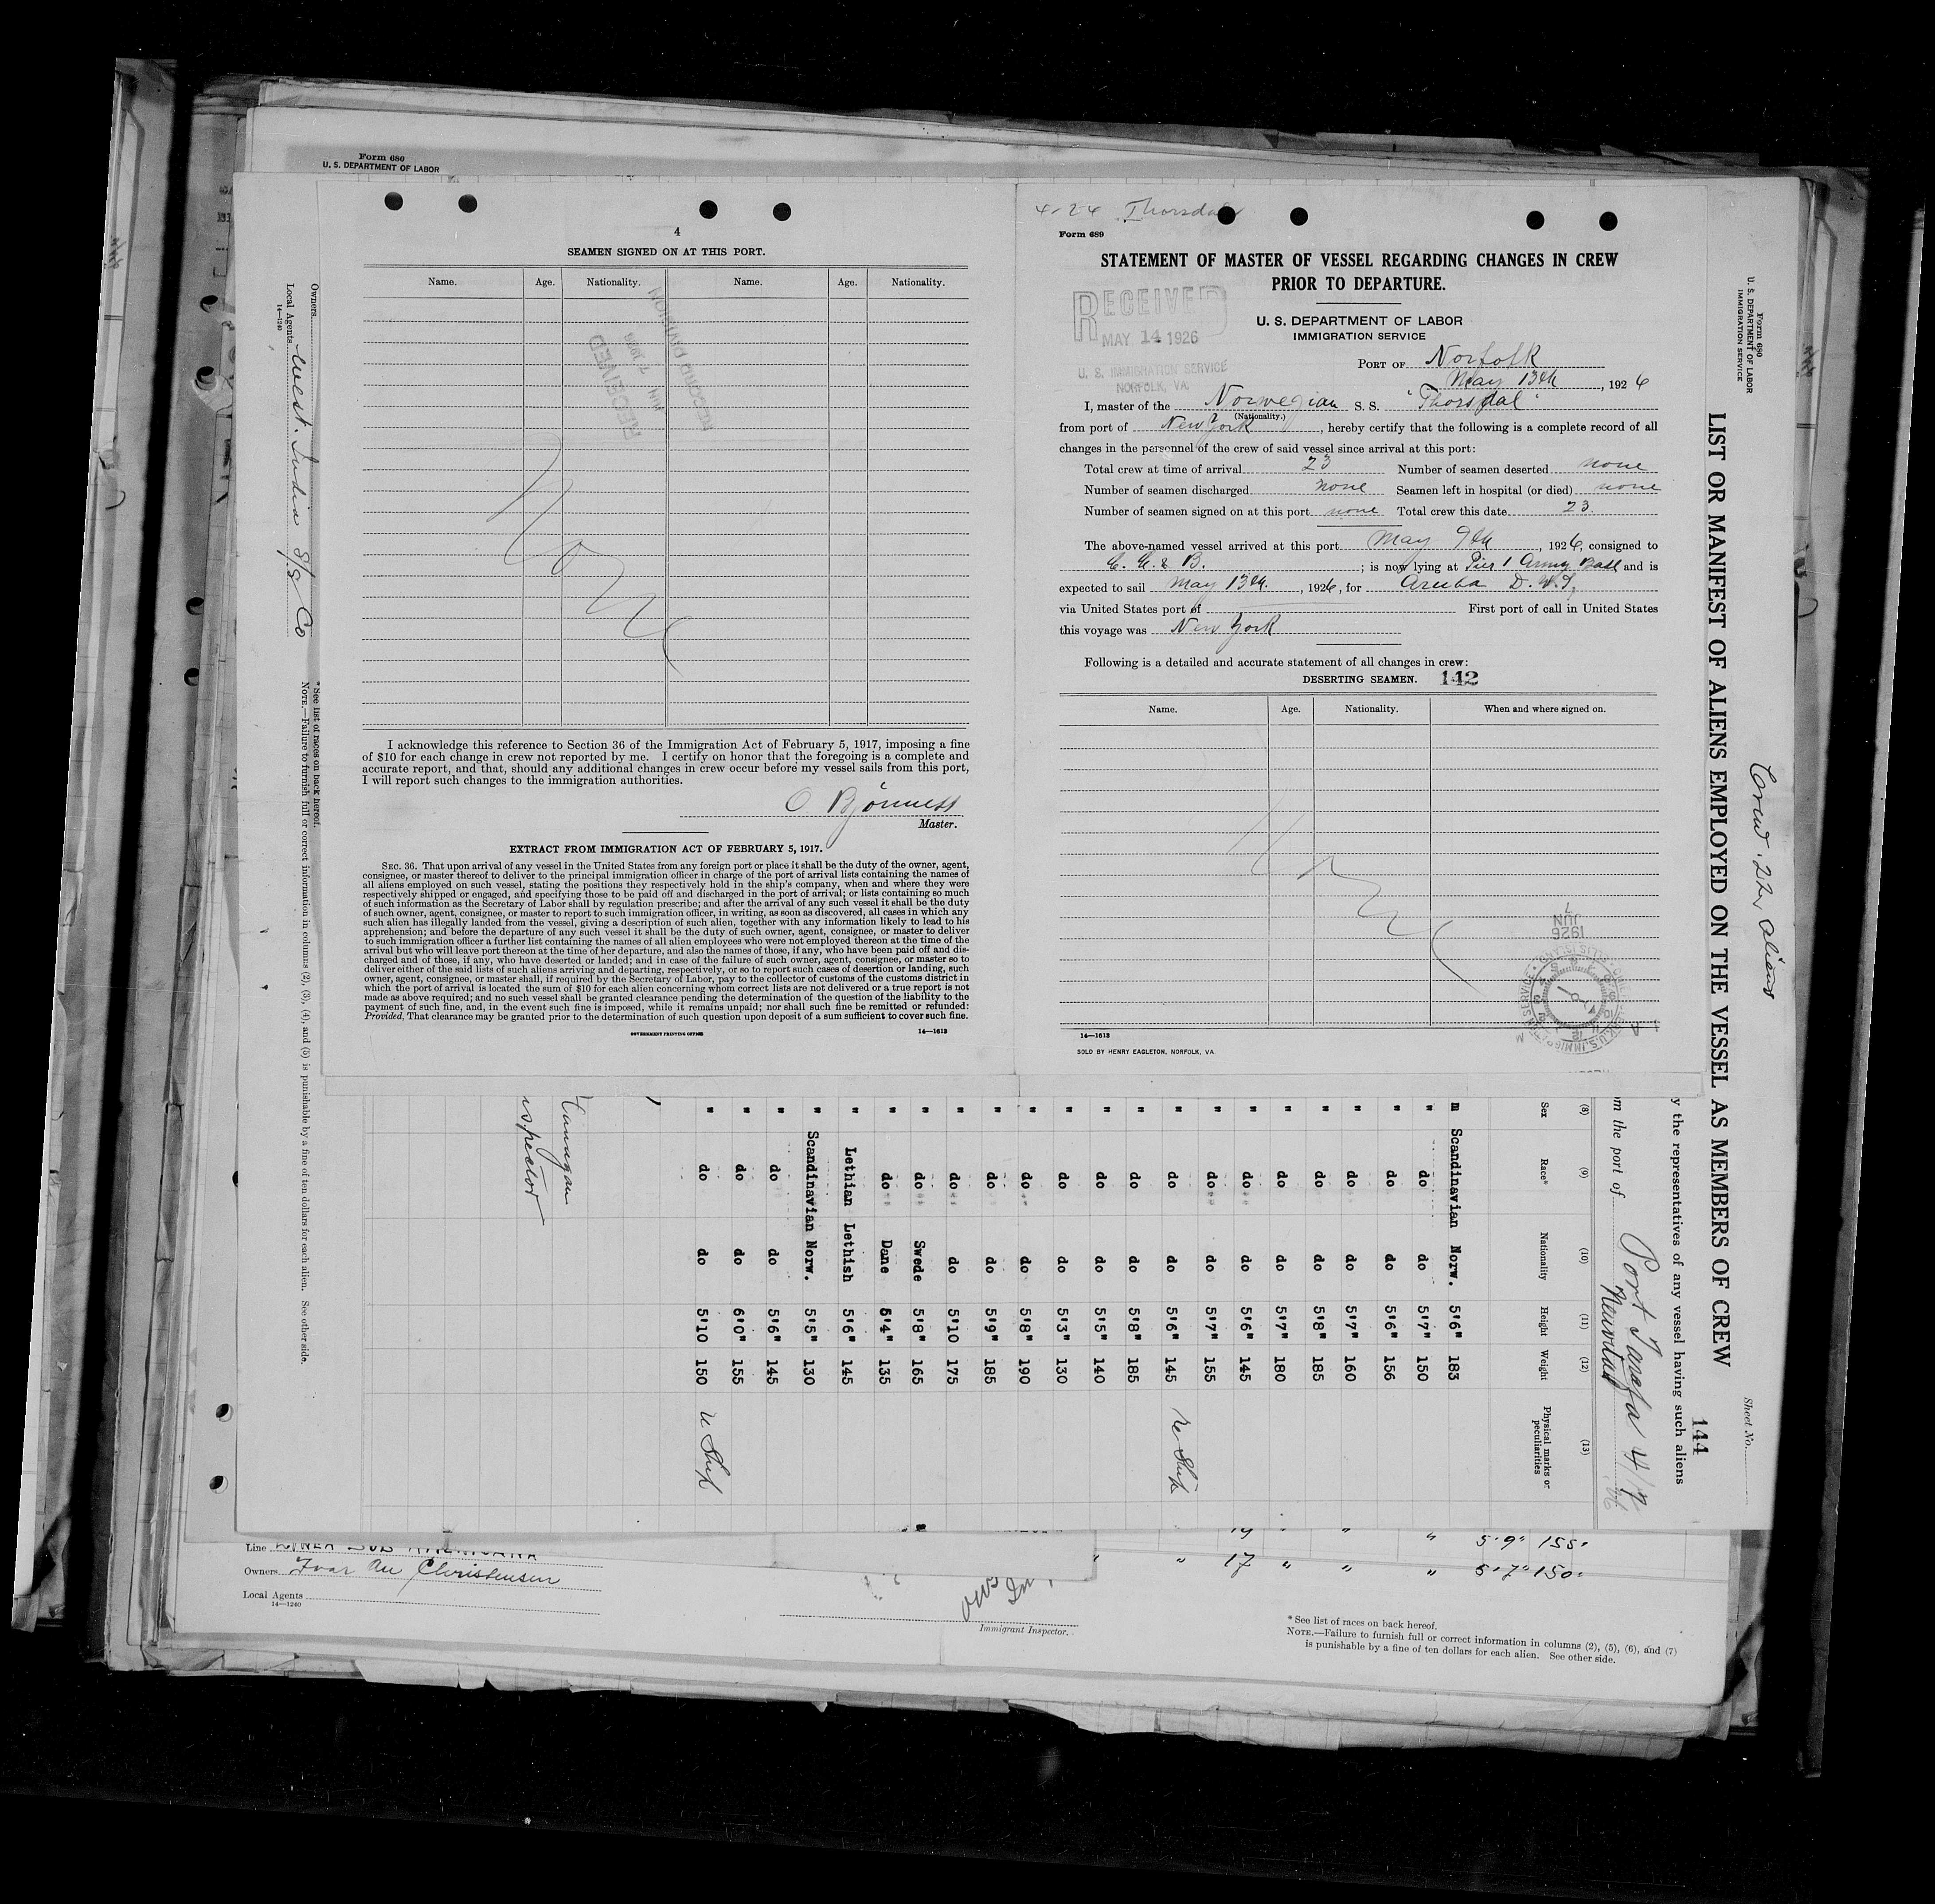 Form 680
U. S. DEPARTMENT OF LABOR
4
SEAMEN SIGNED ON AT THIS PORT.
Name. Age. Nationality. Name. Age. Nationality.
RECEIVED
RECORD DIVISION
None
I acknowledge this reference to Section 36 of the Immigration Act of February 5, 1917, imposing a fine
of $10 for each change in crew not reported by me. I certify on honor that the foregoing is a complete and
accurate report, and that, should any additional changes in crew occur before my vessel sails from this port,
I will report such changes to the immigration authorities.
Master.
EXTRACT FROM IMMIGRATION ACT OF FEBRUARY 5, 1917.
SEC. 36. That upon arrival of any vessel in the United States from any foreign port or place it shall be the duty of the owner, agent,
consignee, or master thereof to deliver to the principal immigration officer in charge of the port of arrival lists containing the names of
all aliens employed on such vessel, stating the positions they respectively hold in the ship's company, when and where they were
respectively shipped or engaged, and specifying those to be paid off and discharged in the port of arrival; or lists containing so much
of such information as the Secretary of Labor shall by regulation prescribe; and after the arrival of any such vessel it shall be the duty
of such owner, agent, consignee, or master to report to such immigration officer, in writing, as soon as discovered, all cases in which any
such alien has illegally landed from the vessel, giving a description of such alien, together with any information likely to lead to his
apprehension; and before the departure of any such vessel it shall be the duty of such owner, agent, consignee, or master to deliver
to such immigration officer a further list containing the names of all alien employees who were not employed thereon at the time of the
arrival but who will leave port thereon at the time of her departure, and also the names of those, if any, who have been paid off and dis-
charged and of those, if any, who have deserted or landed; and in case of the failure of such owner, agent, consignee, or master so to
deliver either of the said lists of such aliens arriving and departing, respectively, or so to report such cases of desertion or landing, such
owner, agent, consignee, or master shall, if required by the Secretary of Labor, pay to the collector of customs of the customs district in
which the port of arrival is located the sum of $10 for each alien concerning whom correct lists are not delivered or a true report is not
made as above required; and no such vessel shall be granted clearance pending the determination of the question of the liability to the
payment of such fine, and, in the event such fine is imposed, while it remains unpaid; nor shall such fine be remitted or refunded:
Provided, That clearance may be granted prior to the determination of such question upon deposit of a sum sufficient to cover such fine.
GOVERNMENT PRINTING OFFICE 14—1613
4-24 Thorsdal
Form 689
STATEMENT OF MASTER OF VESSEL REGARDING CHANGES IN CREW
PRIOR TO DEPARTURE.
RECEIVED
MAY 14 1926
U. S. IMMIGRATION SERVICE
NORFOLK, VA.
U. S. DEPARTMENT OF LABOR
IMMIGRATION SERVICE
PORT OF Norfolk
May 13th, 1926
I, master of the Norwegian S. S. "Thorsdal"
(Nationality.)
from port of New York, hereby certify that the following is a complete record of all
changes in the personnel of the crew of said vessel since arrival at this port:
Total crew at time of arrival 23 Number of seamen deserted none
Number of seamen discharged none Seamen left in hospital (or died) none
Number of seamen signed on at this port none Total crew this date 23
The above-named vessel arrived at this port May 9th, 1926, consigned to
; is now lying at Pier 1 Army Base and is
expected to sail May 13th, 1926, for Aruba D. W. I,
via United States port of First port of call in United States
this voyage was New York
Following is a detailed and accurate statement of all changes in crew:
DESERTING SEAMEN. 142
Name. Age. Nationality. When and where signed on.
None
1926
JUN
7
14—1613
SOLD BY HENRY EAGLETON, NORFOLK, VA.
Form 680
U. S. DEPARTMENT OF LABOR
IMMIGRATION SERVICE
Sheet No.
Crew 22 aliens
LIST OR MANIFEST OF ALIENS EMPLOYED ON THE VESSEL AS MEMBERS OF CREW
144
y the representatives of any vessel having such aliens
m the port of Port Tarafa 4/7
Nuevitas
(8) (9) (10) (11) (12) (13)
Sex Race* Nationality Height Weight Physical marks or peculiarities
m Scandinavian Norw. 5'6" 183
" do do 5'7" 150
" do do 5'6" 156
" do do 5'7" 160
" do do 5'8" 185
" do do 5'7" 180
" do do 5'6" 145
" do do 5'7" 155
" do do 5'6" 145 re Ship
" do do 5'8" 185
" do do 5'5" 140
" do do 5'3" 130
" do do 5'8" 190
" do do 5'9" 185
" do do 5'10 175
" do Swede 5'8" 165
" do Dane 5'4" 135
" Lethian Lethish 5'6" 145
" Scandinavian Norw. 5'5" 130
" do do 5'6" 145
" do do 6'0" 155
" do do 5'10 150 re Ship
Inspector
Owners
Local Agents West. India S/S Co
14—1240
*See list of races on back hereof.
NOTE.—Failure to furnish full or correct information in columns (2), (3), (4), and (5) is punishable by a fine of ten dollars for each alien. See other side.
19 " " " 5'9" 155
" " 17 " " " 5'7" 150
Line LINEA SUD AMERICANA
Owners Ivar An Christensen
Local Agents
14—1240
Immigrant Inspector.
*See list of races on back hereof.
NOTE.—Failure to furnish full or correct information in columns (2), (5), (6), and (7)
is punishable by a fine of ten dollars for each alien. See other side.